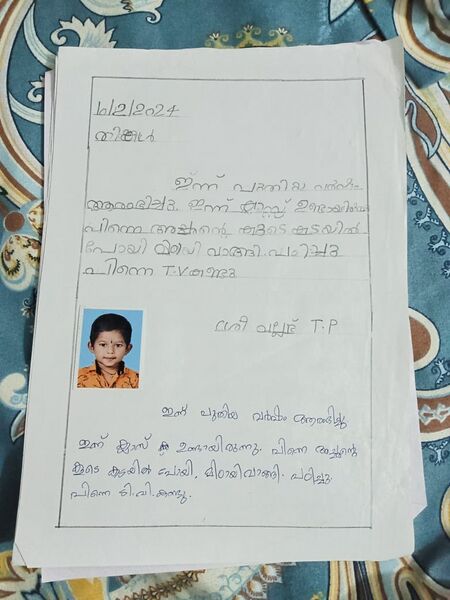 1/2/2024
തിങ്കൾ
ഇന്ന് പുതിയ വർഷം
ആരംഭിച്ചു. ഇന്ന് ക്ലാസ്സ് ഉണ്ടായിരുന്നു
പിന്നെ അച്ഛന്റെ കൂടെ കടയിൽ
പോയി മിഠായി വാങ്ങി. പഠിച്ചു
പിന്നെ T.V കണ്ടു
ശ്രീ വല്ലഭ് T.P
ഇന്ന് പുതിയ വർഷം ആരംഭിച്ചു
ഇന്ന് ക്ലാസ് ഉണ്ടായിരുന്നു. പിന്നെ അച്ഛന്റെ
കൂടെ കടയിൽ പോയി, മിഠായിവാങ്ങി. പഠിച്ചു.
പിന്നെ ടി.വി.കണ്ടു.